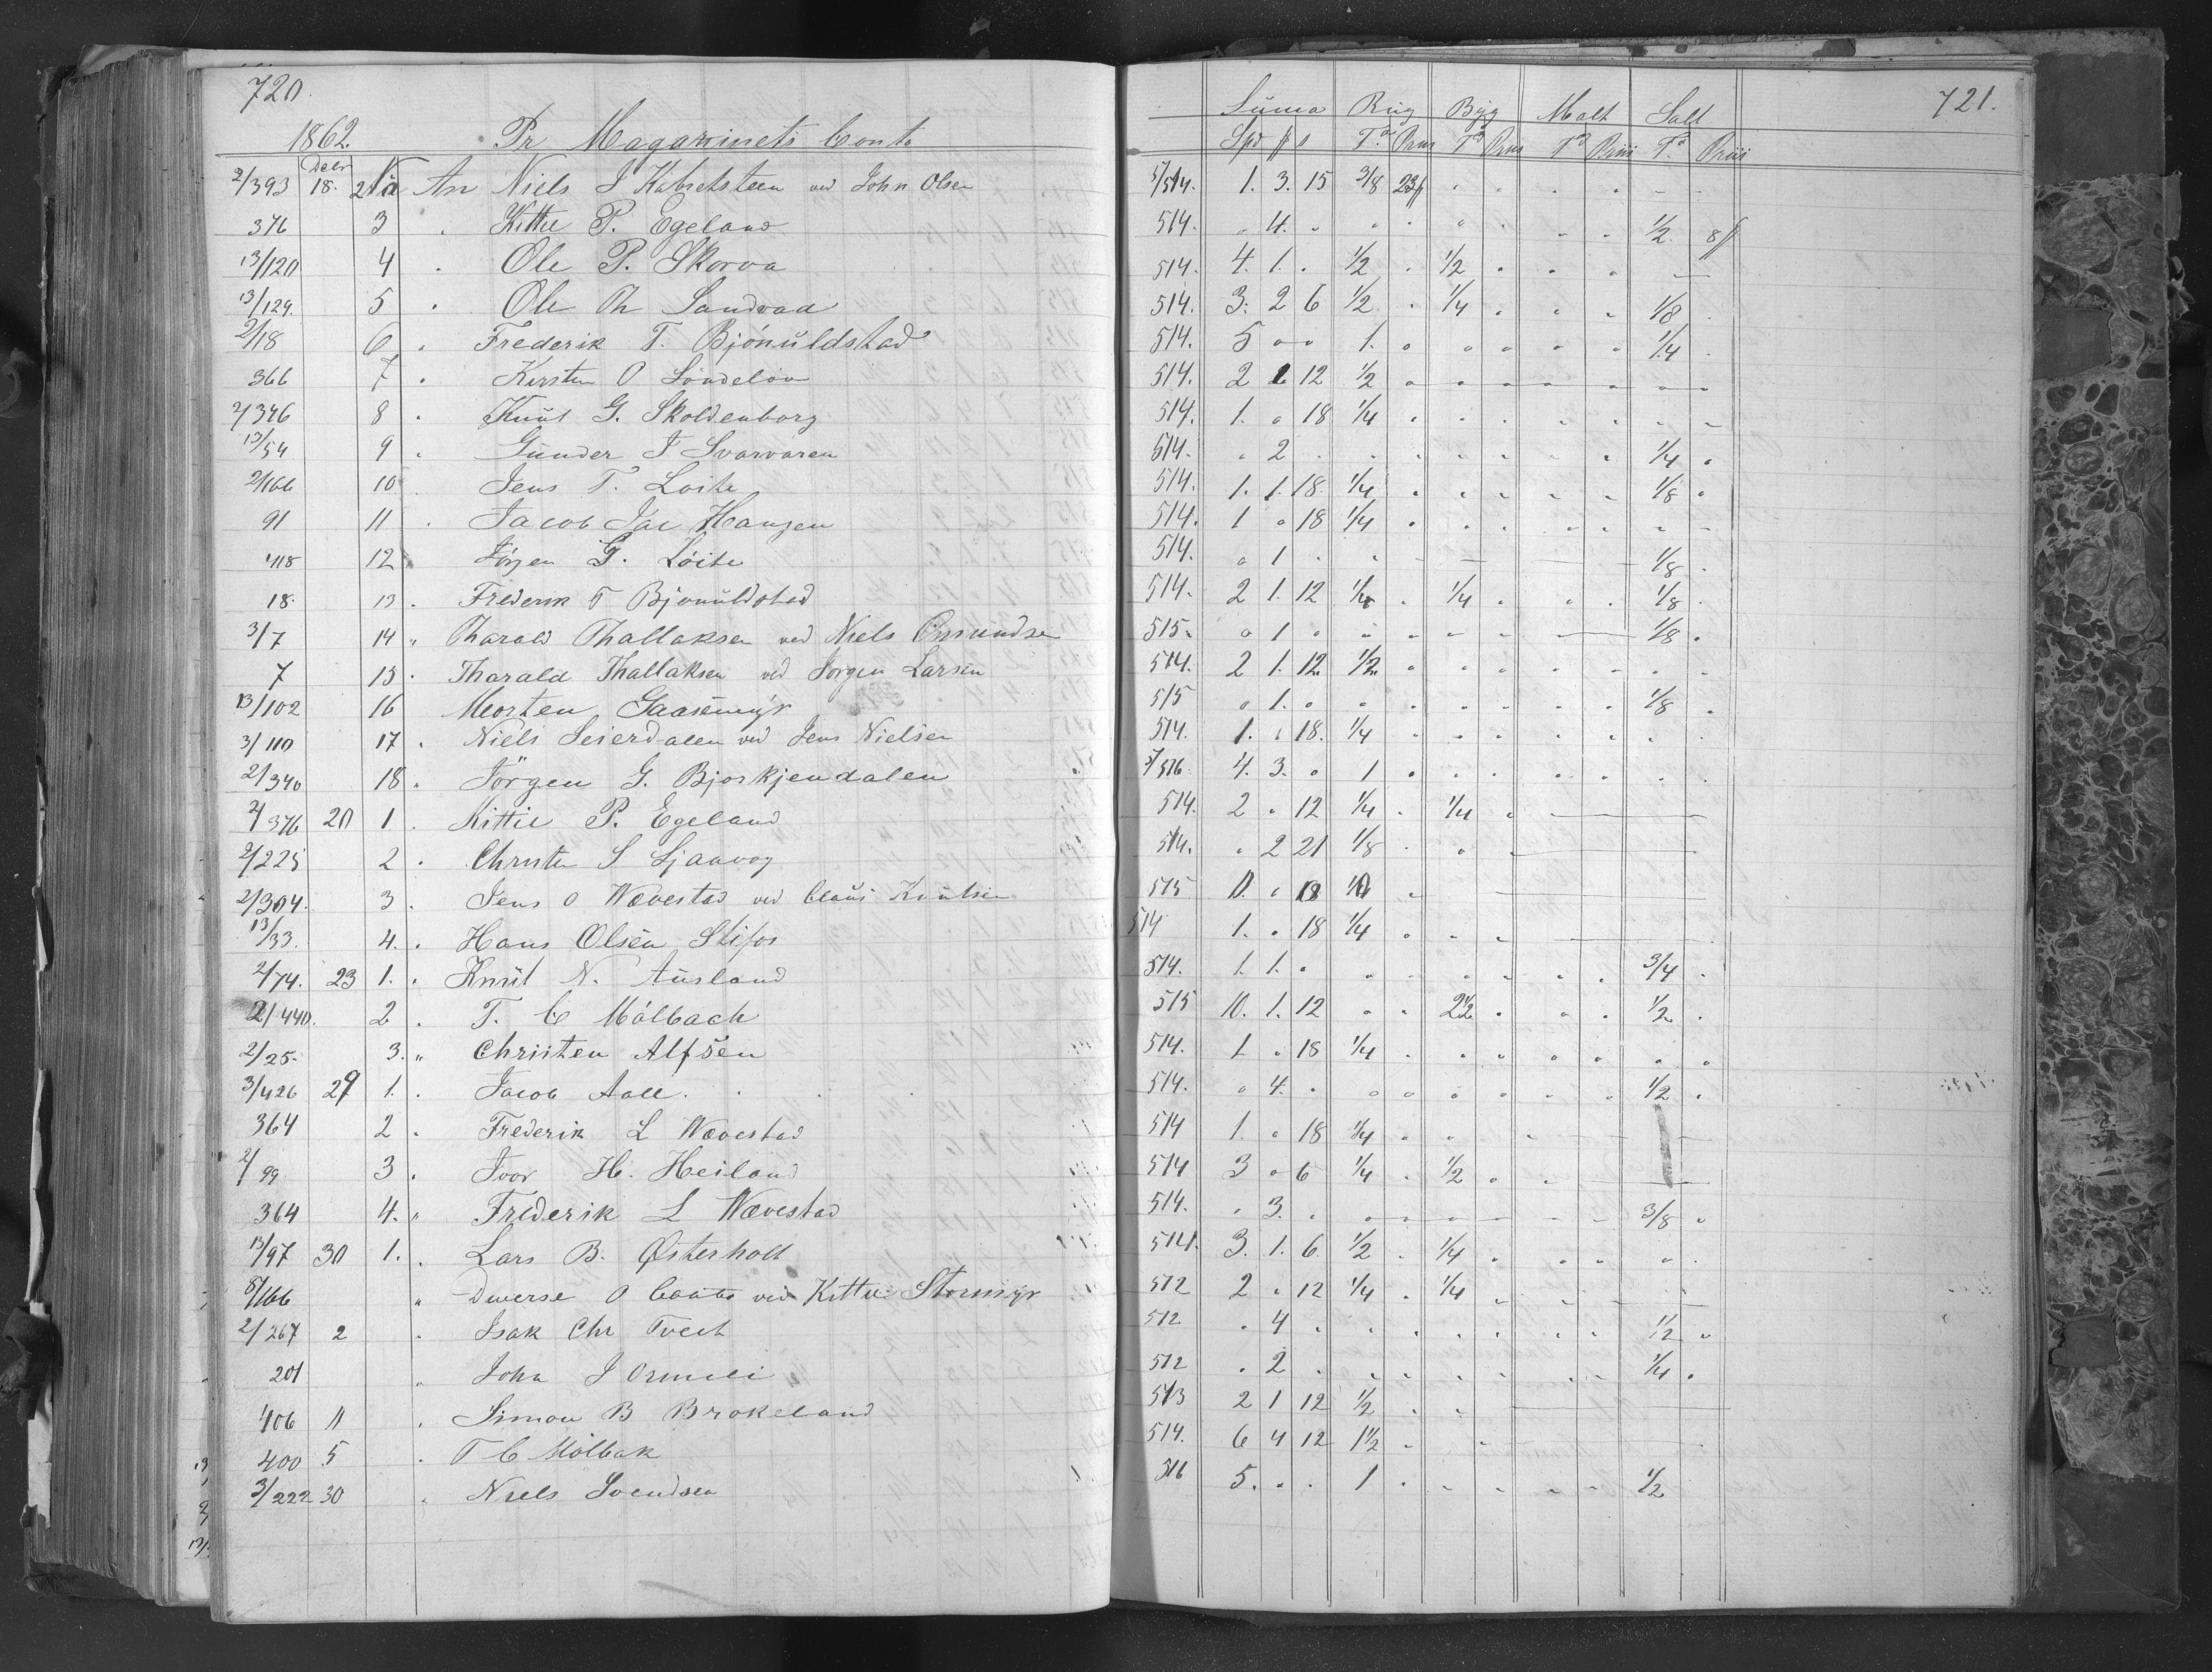 720. 721.
1862. Pr Magazinets Conto Suma Rug Byg Malt Salt
Decbr Spd # s Td Priis Td Priis Td Priis Td Priis
2/393 18. 2 An Niels J Kabretsteen ved John Olsen 5/514. 1. 3. 15 3/8 23# " " " " - -
376 3 " Kittie P. Egeland 514. " 4. " " " " " " " 1/2. 8#
13/120 4 " Ole P. Skorva 514. 4. 1. " 1/2 " 1/2 " " "
13/129. 5 " Ole Th Sandvad 514. 3. 2 6 1/2 " 1/4 " " " 1/8 "
2/18 6 " Frederik T. Bjönuldstad 514. 5 " " 1. " " " " " 1/4 "
366 7 " Kirsten O Löndelöv 514. 2 1 12 1/2 " " " " " " "
2/346 8 " Knut G. Skoldenborg 514. 1. " 18 1/4 " " " " " " "
13/54 9 " Gunder J Svarvaren 514. " 2 " " " " " " " 1/4 "
2/166 10 Jens T. Loite 514. 1. 1. 18. 1/4 " " " " " 1/8 "
91 11 " Jacob Jac Hangen 514. 1 " 18 1/4 " " " " " " "
418 12 " Jörgen G. Löite 514. " 1 " " 1/8 "
18. 13 " Frederik T Bjonuldstad 514. 2 1. 12 1/4 " 1/4 " " " 1/8 "
3/7 14 " Tharald Thallaksen ved Niels Omundsen 515. " 1 " " " " " 1/8 "
7 15 " Tharald Thallaksen ved Jorgen Larsen 514. 2 1. 12. 1/2. " " " " " " "
13/102 16 Morten Gaasemyr 515 " 1. " " " " " " " 1/8 "
3/110 17 " Niels Seierdalen ved Jens Nielsen 514. 1. " 18. 1/4 " " " " " " "
2/340 18 " Jörgen G. Bjorkjendalen 7/516. 4. 3. " 1 " " " " " " "
2/376 20 1 " Kittie P. Egeland 514. 2 " 12 1/4 " 1/4 "
2/225 2 " Christen S Ljaavog 514. " 2 21 1/8 " "
2/304. 3 " Jens O Wævestad ved Claus Knutsen 515 " 18 "
13/33. 4. " Hans Olsen Stifos 514 1. " 18 1/4 " " "
2/74. 23 1. " Knut N. Ausland 514. 1. 1. " " " " " " " 3/4 "
2/440. 2 " T. C Mölbach 515 10. 1. 12 " " 2 1/2 " " " 1/2 "
2/25. 3. " Christen Alfsen 514. 1 " 18 1/4 " " " " " " "
3/426 29 1. " Jacob Aall 514. " 4. " " " " " " " 1/2 "
364 2 " Frederik L Wævestad 514 1. " 18 1/4 " " "
2/99 3 " Ivor H. Heiland 514 3 " 6 1/4 " 1/2 " "
364 4. " Frederik L Wævestad 514. " 3. " " " " " " " 3/8 "
13/97 30 1. " Lars B. Østerholt 514. 3. 1. 6. 1/2 " 1/4 " " " " "
8/166 " Diverse O ved Kittie Stormyr 512 2 " 12 1/4 " 1/4 "
2/267 2 " Isak Chr Tveit 512 " 4 " " " " " " " 1/2 "
201 " John J Ormeli 512 " 2 " " " " " " " 1/4 "
406 11 " Simon B Brokeland 513 2 1 12 1/2 " "
400 5 " T C Mölbak 514. 6 4 12 1 1/2 "
3/222 30 " Niels Svendsen 516 5. " " 1 " " " " " 1/2